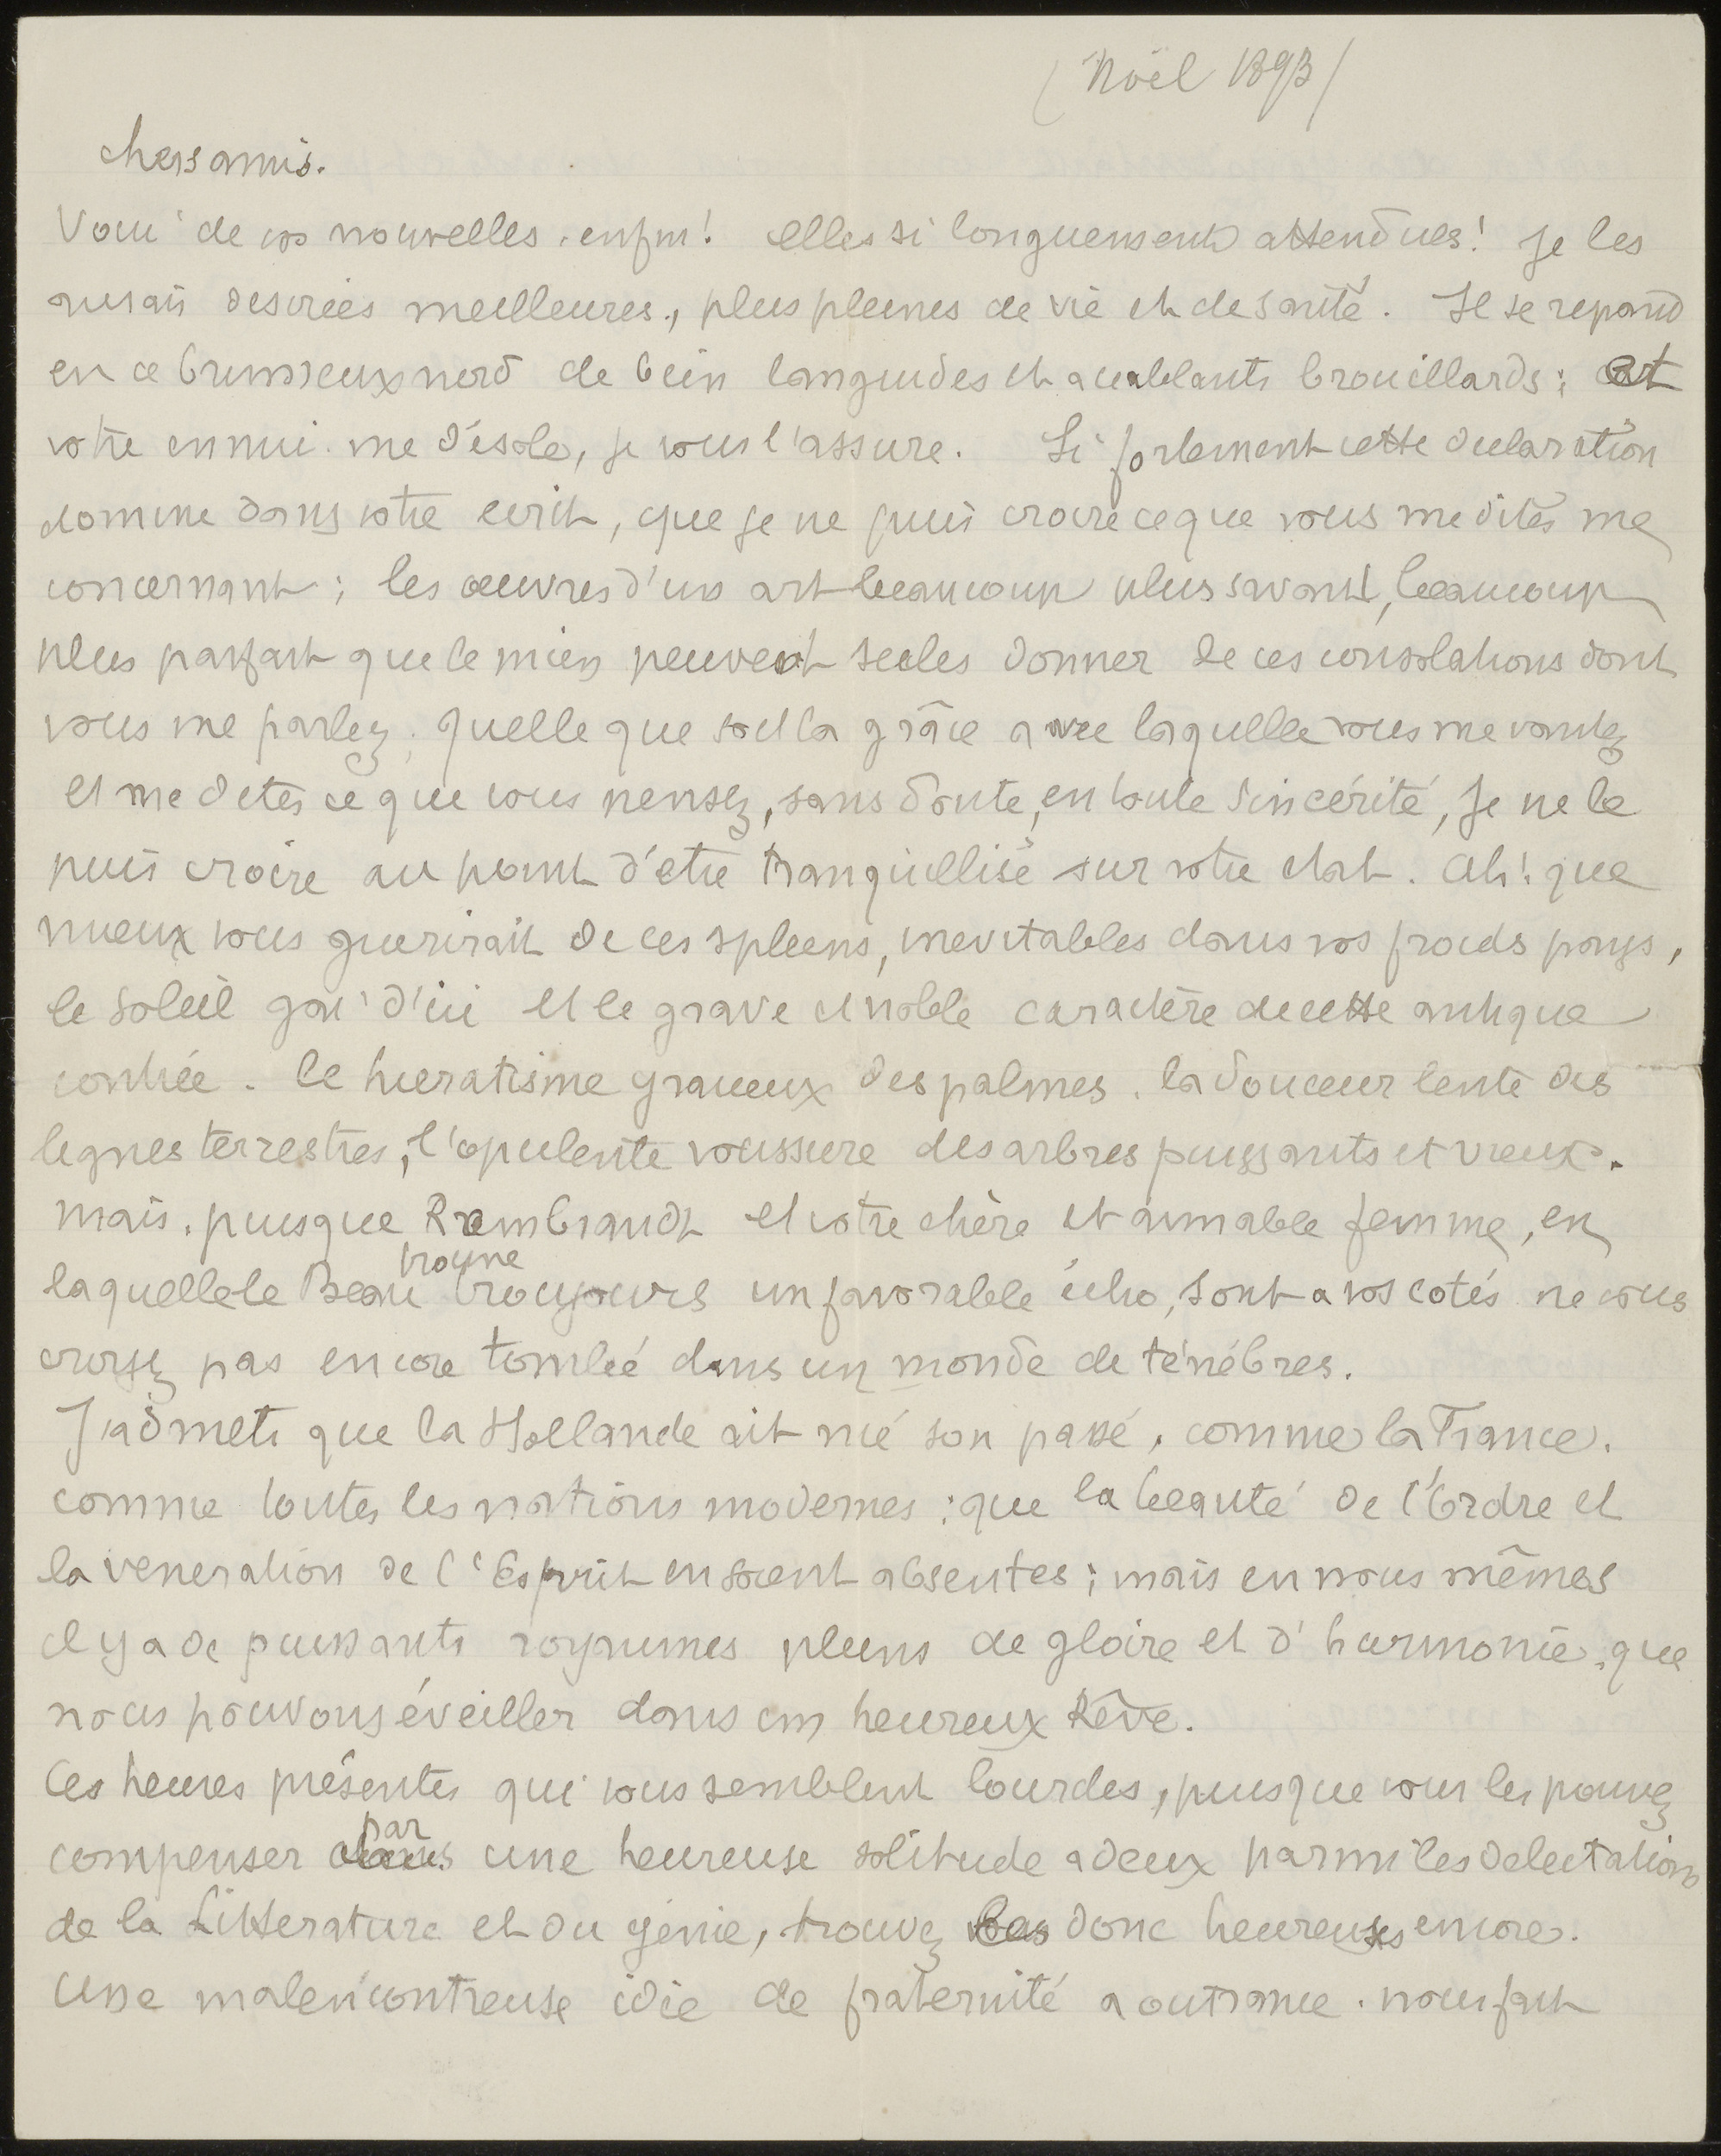 (Noël 1893)
chers amis.
Voici de vos nouvelles. enfin! elles si longuement attendues! Je les
aurais desirées meilleures, plus pleines de vie et de santé. Il se repand
en ce brumeux nord de bien languides et accablants brouillards; et
votre ennui. me désole, je vous l'assure. Si fortement cette declaration
domine dans votre ecrit, que je ne puis croire ce que vous me dites me
concernant; les œuvres d'un art beaucoup plus savant, beaucoup
plus parfait que le mien peuvent seules donner de ces consolations dont
vous me parlez. quelle que soit la grâce avec laquelle vous me vantez
et me dites ce que vous pensez, sans doute, en toute sincérité, je ne le
puis croire au point d'etre tranquillisé sur votre etat. Ah! que
mieux vous guerirait de ces spleens, inevitables dans vos froids pays,
le soleil gai d'ici et le grave et noble caractère de cette antique
contrée. le hieratisme gracieux des palmes. la douceur lente des
lignes terrestres, l'opulente voussure des arbres puissants et vieux.
mais. puisque Rembrandt et votre chère et aimable femme, en
laquelle le Beau trouve un favorable écho, sont a vos cotés ne vous
croyez pas encore tombé dans un monde de ténébres.
J'admets que la Hollande ait nié son passé, comme la France.
comme toutes les nations modernes; que la beauté de l'Ordre et
la veneration de l'Esprit en soient absentes; mais en nous mêmes
il y a de puissants royaumes pleins de gloire et d'harmonie, que
nous pouvons éveiller dans un heureux Rêve.
Ces heures présentes qui vous semblent lourdes, puisque vous les pouvez
compenser par une heureuse solitude a deux parmi les delectations
de la Litterature et du génie, trouvez les donc heureuses encore.
Une malencontreuse idée de fraternité a outrance. nous fait